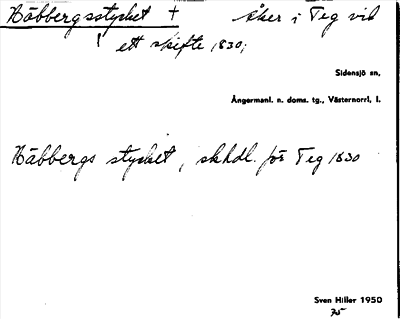 Häbbergsstycket + åker i Teg vid
ett skifte 1830;
Sidensjö sn,
Ångermanl. n. doms. tg., Västernorrl, l.
Häbbergs stycket, skhdl. för Teg 1830
Sven Hiller 1950